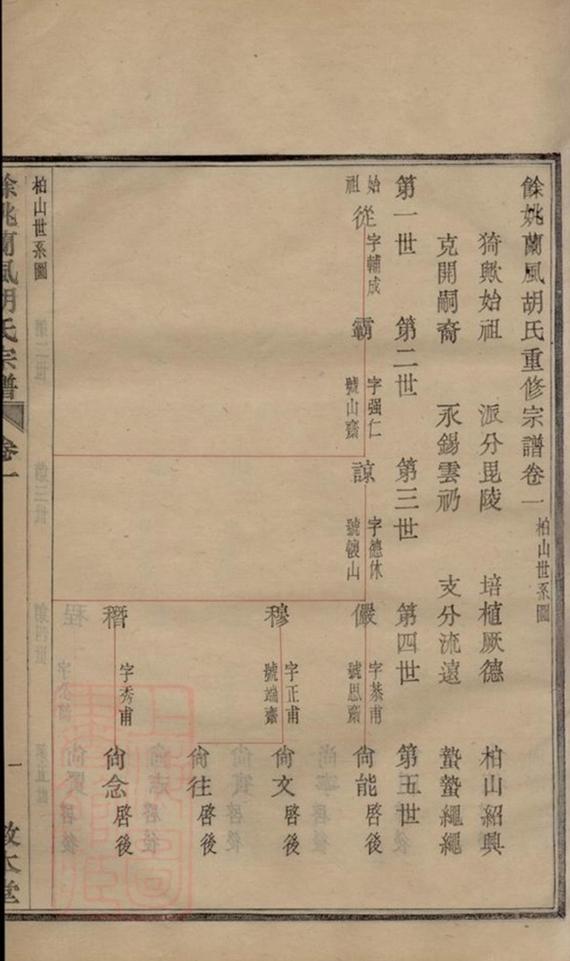 餘姚蘭風胡氏重修宗譜卷一 柏山世系圖
猗歟始祖 派分毘陵 培植厥德 柏山紹興
克開嗣裔 永錫雲礽 支分流遠 蟄蟄繩繩
第一世 第二世 第三世 第四世 第五世
始祖 從 字輔成
霸 字强仁 號山齋
諒 字德休 號懷山
儼 字恭甫 號思齋
尙能 啓後
穆 字正甫 號端齋
尙文 啓後
尙往 啓後
稽 字秀甫
尙念 啓後
柏山世系圖
餘姚蘭風胡氏宗譜 卷一 一 敦本堂